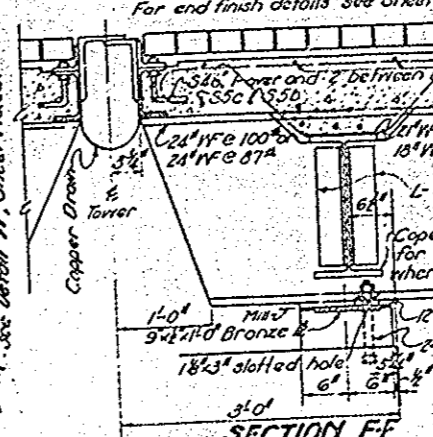 For end finish details see Sheet
S4a over and 2 between
S5c S5b
24"WF@100# or
24"WF@87#
21"W
18"W
5¼"
℄
Tower
Copper Drain
6½"
L-
Cope
for
wher
1'-0"
Mill
12
9"x½"x1'-0" Bronze
2
1⅛"x3" slotted hole
6"
6"
½"
3'-0"
SECTION F-F